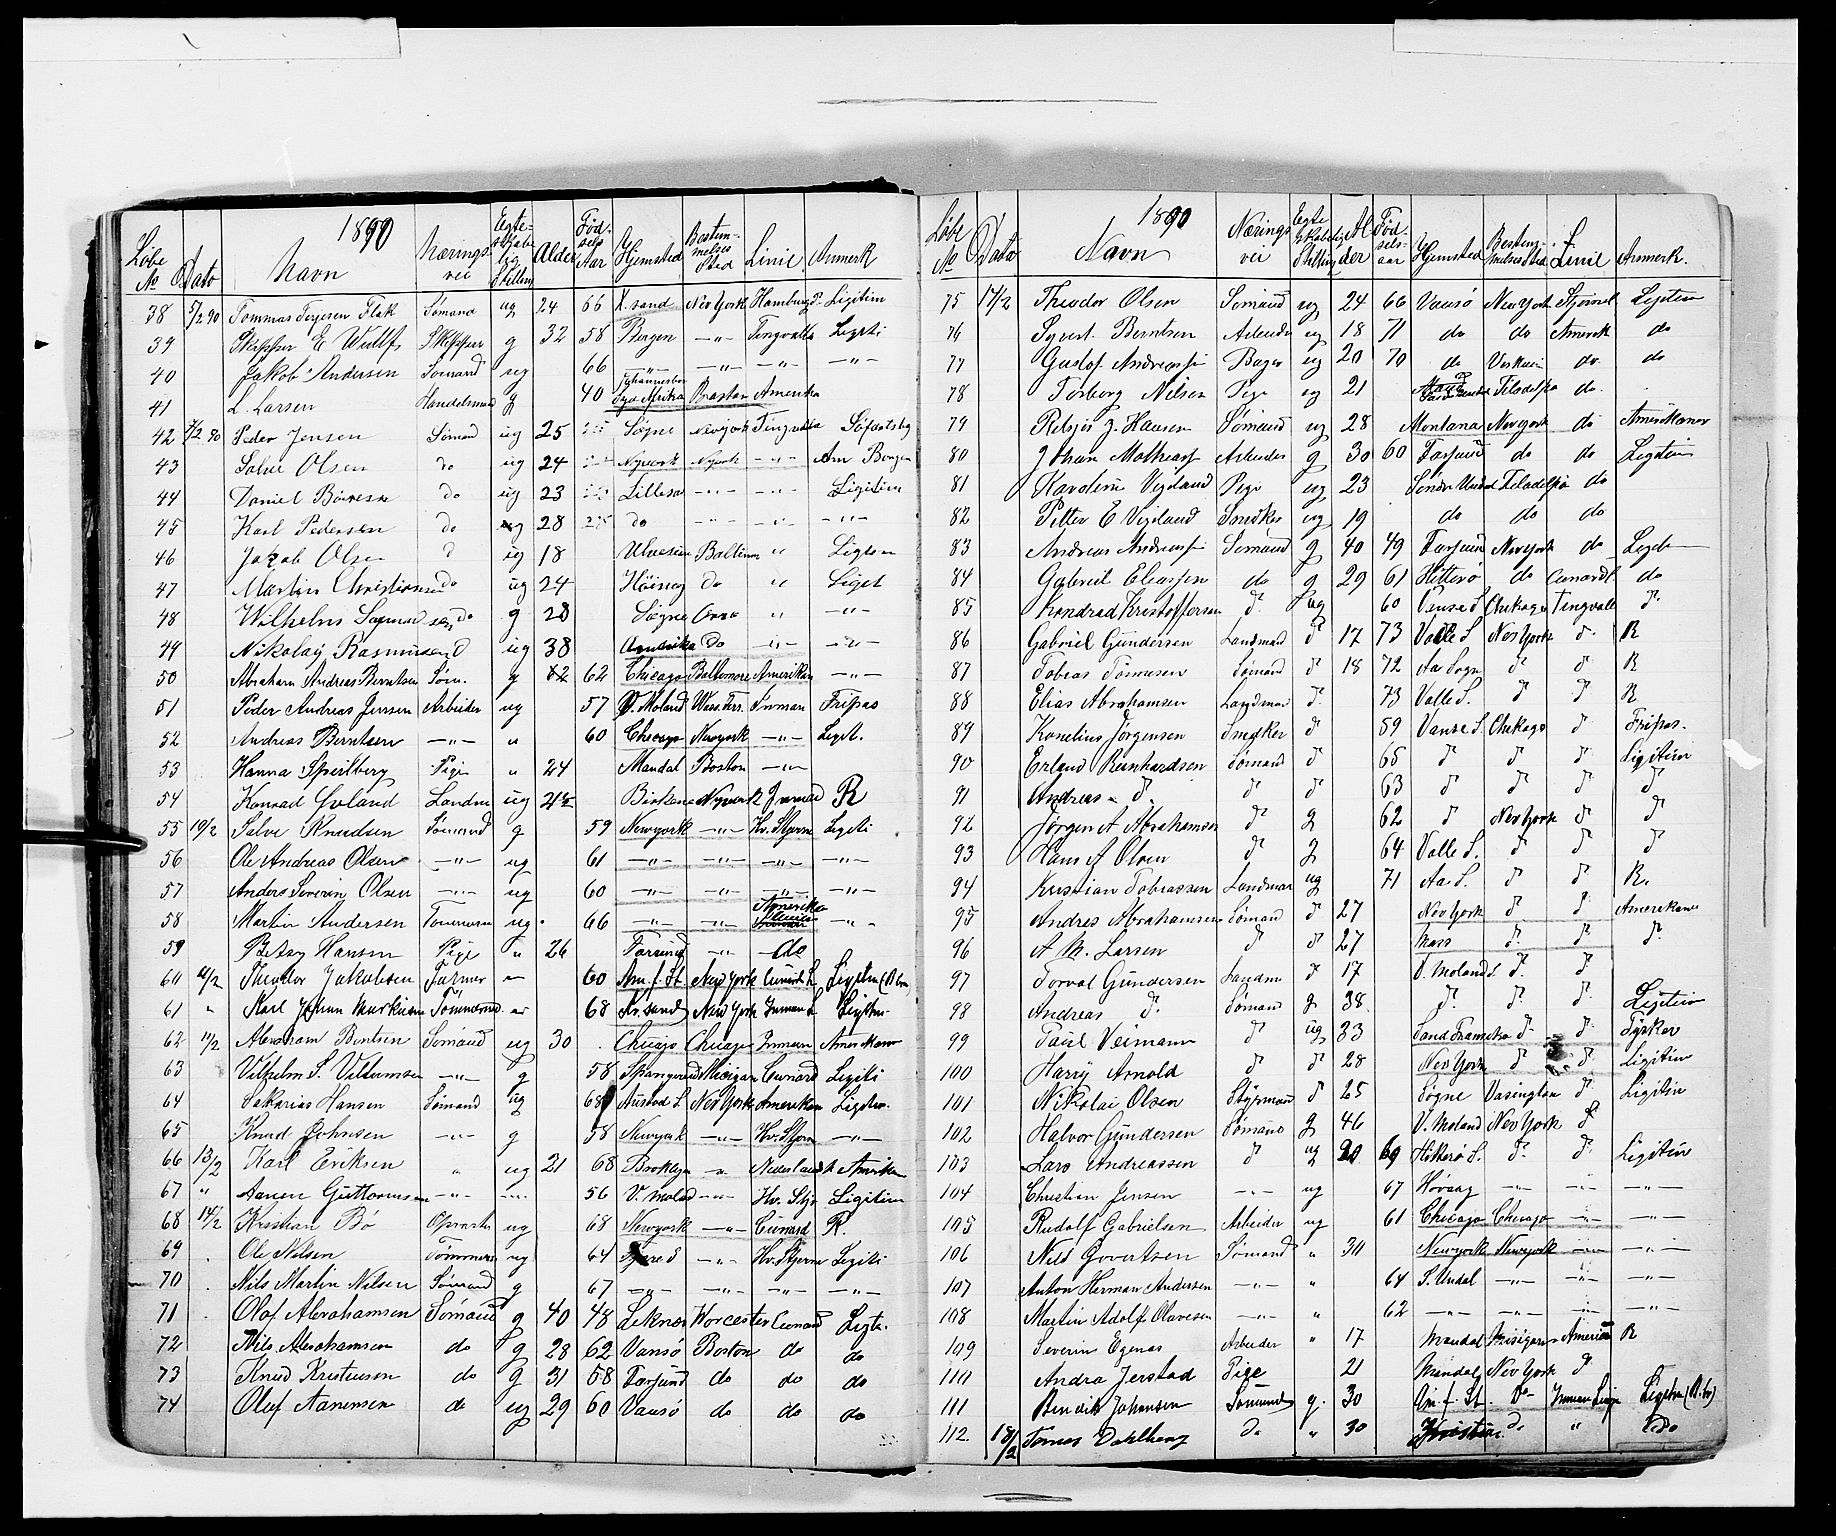 1890
Løbe No Dato Navn Nærings vei Egte- skabe lig Stelling Alder Fød- sels Aar Hjemsted Bestem- melses Sted Linie Anmerk
38 5/2 90 Tommas Terjesen Flak Sømand ug 24 66 K.sand New York Hamburg Ligitim
39 Skipper E Wulff Skipper g 32 58 Bergen -"- Tingvalla Ligiti
40 Jakob Andersen Sømand ug 66 -"- -"- -"- -"-
41 L. Larsen Handelsmand g 40 Syd Afrika Boston Amerika
42 7/2 90 Peder Jensen Sømand ug 25 Søgne Newyork Tingvalla
43 Salve Olsen do ug 24 Nywork Nywork -"- Am Borger
44 Daniel do ug 23 Lillesa -"- -"- Ligitim
45 Karl Pedersen do ug 28 do -"- -"- -"-
46 Jakob Olsen d ug 18 Baltimor " Ligtim
47 Martin Christiansen do ug 24 do " Ligit
48 Wilhelm do g 28 Søgne " -"-
49 Nikolay Rasmussen d ug 38 Amerika do -"- -"-
50 Abraham Andreas Berntsen Søm. g 62 Chicago Baltemore Amerikan -"-
51 Peder Andreas Jensen Arbeider ug 57 V. Moland Inman Fripas
52 Andreas Berntsen -"- " 60 Chicago Newyork -"- Legit.
53 Hanna Speilberg Pige " 24 Mandal Boston -"-
54 Konrad Landm ug Birkene Nywork R
55 10/2 Salve Knudsen Sømand g 59 Newyork -"- Hv. Stjerne Ligiti
56 Ole Andreas Olsen -"- ug 61 -"- -"- -"- -"-
57 Anders Severin Olsen -"- ug 60 -"- -"- -"- -"-
58 Martin Andersen Tømmerm ug 66 -"- -"- Amerika -"-
59 Betsy Hansen Pige " 26 Farsund -"- do
60 11/2 Theodor Jakobsen Farmer -"- 60 Am. f. St. New York Cunard L Ligitim
61 " Karl Johan Markusen Tømmerm 68 Kr.sand New York Inman L Ligitim
62 11/2 Abraham Bentsen Sømand ug 30 Chicago Chicago Inman Amerikaner
63 Vilhelm S. Villumsen -"- g 58 Spangereid Michigan Cunard Legiti
64 Sakarias Hansen Sømand ug 68 Austad S. New York Amerikan Ligitim
65 Knud Johnsen -"- g 58 Newyork -"- Hv. Stjern -"-
66 13/2 Karl Eriksen " ug 21 68 Broklyn " Nederlandsk Amerikan
67 " Aanen Guttormsen -"- -"- 56 V. Moland -"- Hv. Stje Ligitim
68 14/2 Kristian Bø ug 68 Newyork -"- Cunard R.
69 Ole Nilsen Tømmerm ug 64 -"- Hv. Stjerne Legiti
70 Nils Martin Nilsen Sømand g 67 -"- -"- -"- -"-
71 Olaf Abrahamsen Sømand g 40 48 Leknes Worcester Cunard Ligti
72 Nils Abrahamsen do g 28 62 Vansø Boston do do
73 Knud Kristensen do g 31 58 Farsund do do do
74 Oluf Aanensen do ug 29 60 Vansø do do do
1890
Løbe No Dato Navn Nærings vei Egte skabelig Stelling Al der Fød- sels- aar Hjemsted Bestem- melses Sted Linie Anmerk.
75 17/2 Theodor Olsen Sømand ug 24 66 Vansø New York Stjernel Legitim
76 Syvert Berntsen Arbeider ug 18 71 do do Amerik do
77 Gustof Andreasen Bager ug 20 70 do do do
78 Torborg Nilsen Pige ug 21 Filadelfia do
79 Reltjis J. Hansen Sømand ug 28 Montana New York do Amerikaner
80 Johan Mathiasen Arbeider g 30 60 Farsund do do Legitim
81 Karoline Vigeland Pige ug 23 Søndre Undal Filadelfia do
82 Petter E Vigeland Snedker ug 19 do do do
83 Andreas Andreasen Sømand g 40 49 Farsund New York do Legit
84 Gabriel Eliassen do g 29 61 Hitterø do Cunard L do
85 Kondrad Kristoffersen d. ug 60 Vanse S. Chikago Tingvalle d.
86 Gabriel Gundersen Landmand d 17 73 Valle S. New York d. R
87 Tobias Tønnesen Sømand d 18 72 Aa Sogn d d R
88 Elias Abrahamsen Landmand d. 73 Valle S. d d R
89 Konelius Jørgensen Snedker d 59 Vanse S. Chikago d Fripas.
90 Erland Reinhardsen Sømand d 65 d d d Ligitim
91 Andreas d. d d 63 d d d d
92 Jørgen A Abrahamsen d g 62 d New York d d
93 Hans A Olsen d g 64 Valle S. d d d
94 Kristian Tobiassen Landmand ug 71 Aa S. d d R.
95 Andres Abrahamsen Sømand d 27 New York d d. Amerikane
96 A M. Larsen d d 27 Mass d. d d.
97 Torval Gundersen Landm d 17 V. Moland S d. d
98 Andreas d. Sømand g 38 d. d. d. Ligitim
99 Paul Veimann d ug 33 d. d. Tysker
100 Harry Arnold d d 28 New York d d. Ligitim
101 Nikolai Olsen Styrmand d 25 Søgne Vasington d Ligitim
102 Halvor Gundersen Sømand g 46 V. Moland New York d
103 Lars Andreassen d ug 20 69 Hitterø S. d. d. Ligitim
104 Christian Jensen -"- ug 67 Høvaag -"- -"- -"-
105 Rudolf Gabrielsen Arbeider ug 61 Chicago Chicago -"- -"-
106 Nils Govertsen Sømand " 30 Newyork Newyork -"- -"-
107 Anton Herman Andersen -"- " 64 S. Undal -"- -"- -"-
108 Martin Adolf Olavesen -"- " 62 -"- -"- -"- -"-
109 Severin Egenas Arbeider " 17 Mandal Misigan Amerika R
110 Andra Jerstad Pige 21 Mandal New York d.
111 Bendik Johansen Sømand g. 30 Am. f. St. Do Inman Linje Ligitim
112. 18/2 Tomas Dahlberg Do " 30 do " do